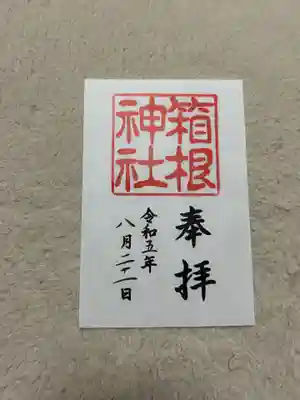 奉拝
箱根
神社
令和五年
八月二十一日